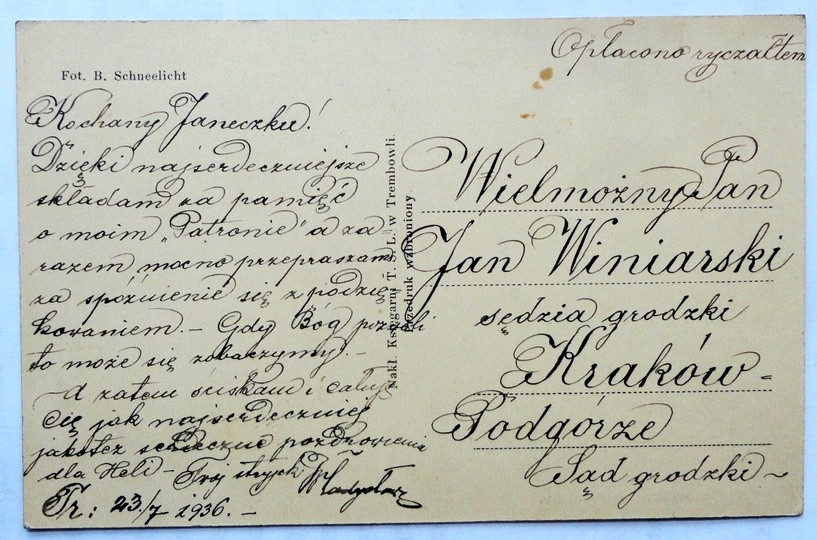 Opłacono ryczałtem
Fot. B. Schneelicht
Kochany Janeczku!
Dzięki najserdeczniejsze
składam za pamięć
o moim „Patronie" a za
razem mocno przepraszam
za spóźnienie się z podzię-
kowaniem. – Gdy Bóg pozwoli
to może się zobaczymy. –
A zatem ściskam i całuję
Cię jak najserdeczniej
jakoteż serdeczne pozdrowienia
dla Heli – Twój stryjek Władysław
Tr: 23/7 1936. –
Nakł. Księgarni T. S. L. w Trembowli.
Przedruk wzbroniony
Wielmożny Pan
Jan Winiarski
sędzia grodzki
Kraków-
Podgórze
Sąd grodzki ~